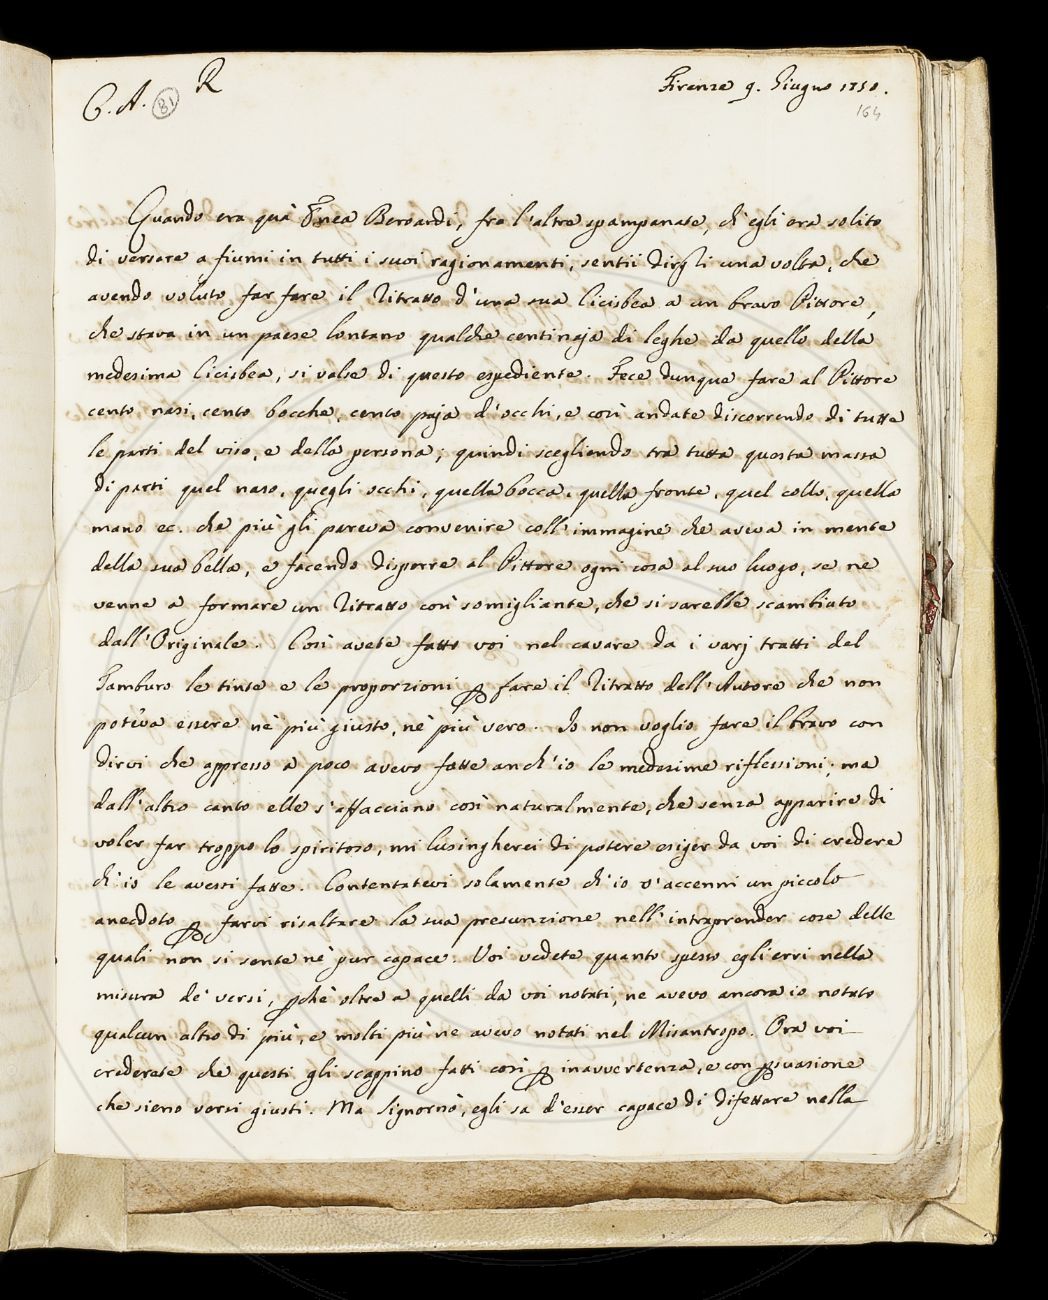 R
C. A. 81
Firenze 9. Giugno 1750.
164
Quando era quà Enea Beroardi, fra l'altre spampanate, ch'egli era solito
di versare a fiumi in tutti i suoi ragionamenti, sentii dirgli una volta, che
avendo voluto far fare il Ritratto d'una sua Cicisbea a un bravo Pittore,
che stava in un paese lontano qualche centinaja di leghe da quello della
medesima Cicisbea, si valse di questo espediente. Fece dunque fare al Pittore
cento nasi, cento bocche, cento paja d'occhi, e così andate discorrendo di tutte
le parti del viso, e della persona; quindi scegliendo tra tutta questa massa
di parti quel naso, quegli occhi, quella bocca, quella fronte, quel collo, quella
mano ec. che più gli pareva convenire coll'immagine che aveva in mente
della sua bella, e facendo disporre al Pittore ogni cosa al suo luogo, se ne
venne a formare un Ritratto così somigliante, che si sarebbe scambiato
dall'Originale. Così avete fatto voi nel cavare da i varj tratti del
Tamburo le tinte e le proporzioni p fare il Ritratto dell'Autore che non
poteva essere nè più giusto, nè più vero. Io non voglio fare il bravo con
dirvi che appresso a poco avevo fatte anch'io le medesime riflessioni; ma
dall'altro canto elle s'affacciano così naturalmente, che senza apparire di
voler far troppo lo spiritoso, mi lusingherei di potere esiger da voi di credere
ch'io le avessi fatte. Contentatevi solamente ch'io v'accenni un piccolo
anecdoto p farvi risaltare la sua presunzione nell'intraprender cose delle
quali non si sente nè pur capace. Voi vedete quanto spesso egli erri nella
misura de' versi, pchè oltre a quelli da voi notati, ne avevo ancora io notato
qualcun altro di più, e molti più ne avevo notati nel Misantropo. Ora voi
crederete che questi gli scappino fatti così p inavvertenza, e con psuasione
che sieno versi giusti. Ma Signornò, egli sa d'esser capace di difettare nella